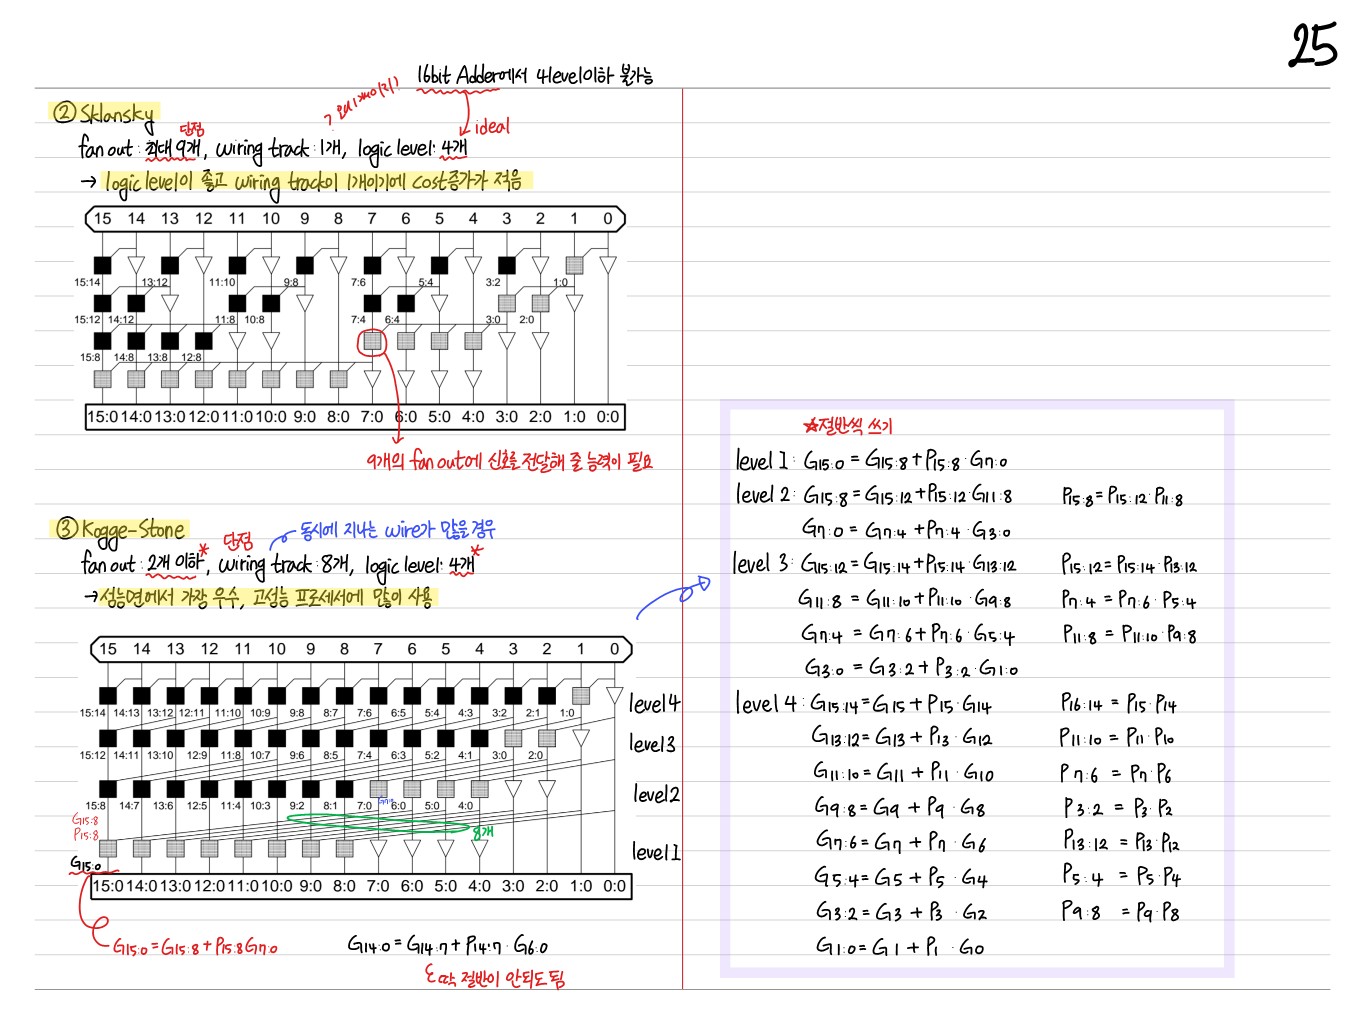 25
16bit Adder에서 4level이하 불가능
② Sklansky
단점
ideal
fan out : 최대 9개, wiring track : 1개, logic level : 4개
→ logic level이 좋고 wiring track이 1개이기에 cost증가가 적음
15 14 13 12 11 10 9 8 7 6 5 4 3 2 1 0
15:14 13:12 11:10 9:8 7:6 5:4 3:2 1:0
15:12 14:12 11:8 10:8 7:4 6:4 3:0 2:0
15:8 14:8 13:8 12:8
15:0 14:0 13:0 12:0 11:0 10:0 9:0 8:0 7:0 6:0 5:0 4:0 3:0 2:0 1:0 0:0
9개의 fan out에 신호를 전달해 줄 능력이 필요
③ Kogge-Stone
단점
동시에 지나는 wire가 많을 경우
fan out : 2개 이하*, wiring track : 8개, logic level : 4개*
→ 성능면에서 가장 우수, 고성능 프로세서에 많이 사용
15 14 13 12 11 10 9 8 7 6 5 4 3 2 1 0
level 4
15:14 14:13 13:12 12:11 11:10 10:9 9:8 8:7 7:6 6:5 5:4 4:3 3:2 2:1 1:0
level 3
15:12 14:11 13:10 12:9 11:8 10:7 9:6 8:5 7:4 6:3 5:2 4:1 3:0 2:0
level 2
15:8 14:7 13:6 12:5 11:4 10:3 9:2 8:1 7:0 6:0 5:0 4:0
G15:8
P15:8
8개
level 1
G15:0
15:0 14:0 13:0 12:0 11:0 10:0 9:0 8:0 7:0 6:0 5:0 4:0 3:0 2:0 1:0 0:0
G15:0 = G15:8 + P15:8 G7:0
G14:0 = G14:7 + P14:7 · G6:0
딱 절반이 안되도 됨
☆절반씩 쓰기
level 1 : G15:0 = G15:8 + P15:8 · G7:0
level 2 : G15:8 = G15:12 + P15:12 G11:8 P15:8 = P15:12 · P11:8
G7:0 = G7:4 + P7:4 · G3:0
level 3 : G15:12 = G15:14 + P15:14 · G13:12 P15:12 = P15:14 · P13:12
G11:8 = G11:10 + P11:10 · G9:8 P7:4 = P7:6 · P5:4
G7:4 = G7:6 + P7:6 · G5:4 P11:8 = P11:10 · P9:8
G3:0 = G3:2 + P3:2 · G1:0
level 4 : G15:14 = G15 + P15 · G14 P16:14 = P15 · P14
G13:12 = G13 + P13 · G12 P11:10 = P11 · P10
G11:10 = G11 + P11 · G10 P7:6 = P7 · P6
G9:8 = G9 + P9 · G8 P3:2 = P3 · P2
G7:6 = G7 + P7 · G6 P13:12 = P13 · P12
G5:4 = G5 + P5 · G4 P5:4 = P5 · P4
G3:2 = G3 + P3 · G2 P9:8 = P9 · P8
G1:0 = G1 + P1 · G0